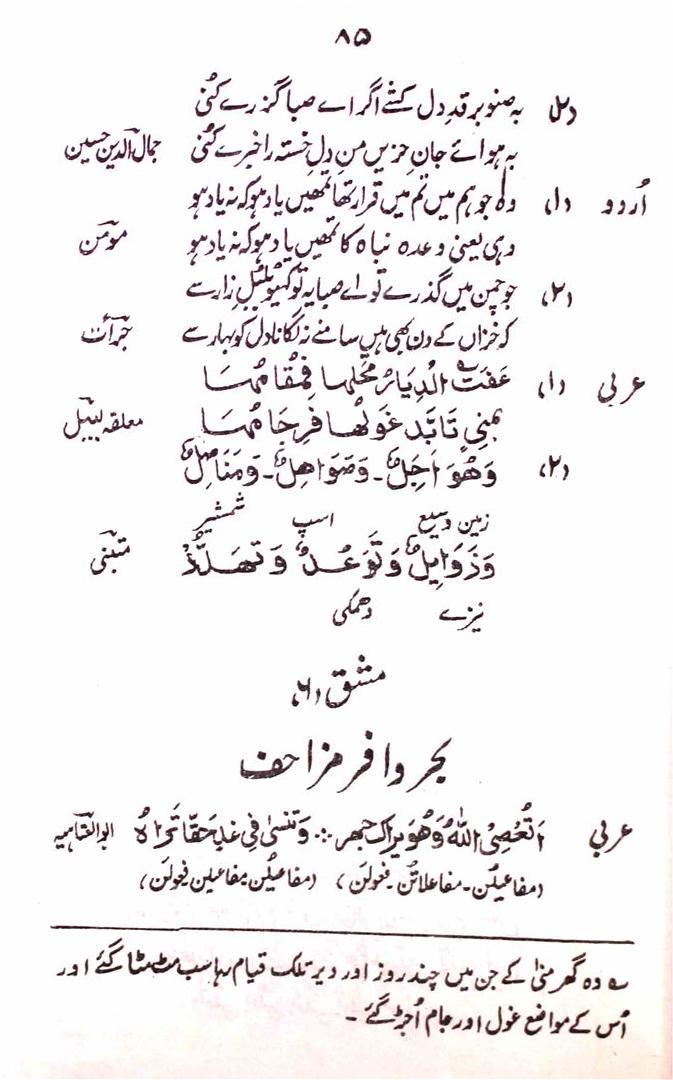 ۸۵
(۲) بہ صنوبر قدِ دل کشے اگر اے صبا گزرے کُنی
بہ ہوائے جانِ حزیں من دلِ خستہ را خبرے کُنی جمال الدین حسین
اُردو (۱) وہ جو ہم میں تم میں قرار تھا تمھیں یاد ہو کہ نہ یاد ہو
وہی یعنی وعدہ نباہ کا تمھیں یاد ہو کہ نہ یاد ہو مومن
(۲) جو چمن میں گذرے تو اے صبا یہ تو کہیو بلبلِ زار سے
کہ خزاں کے دن بھی ہیں سامنے نہ لگانا دل کو بہار سے جرأت
عربی (۱) عَفَتِ الدِّیَارُ مَحَلُّہا فَمُقَامُہَا
بمنیً تَابَّدَ غَوْلُھا فَرِجَامُہَا معلقہ لبید
(۲) وَھُوَ اَجَلٌ۔ وَصَوَاھِلٌ۔ وَمَنَاصِلٌ
زمین وسیع اسپ شمشیر
وَذَوَابِلٌ وَتَوَعُّدٌ وَتَھَدُّدٌ متنبی
نیزے دھمکی
مشق (۶)
بحر وافر مزاحف
عربی اَتَعْصِی اللّٰہَ وَھُوَ یَراکَ جھر ؞ وَتَنْسیٰ فِی غَدٍ حَقًّا تَرَاہُ ابوالعتاہیہ
(مفاعیلن۔ مفاعلاتن۔ فعولن) (مفاعیلُن مفاعیلن فعولن)
؎ وہ گھر منیٰ کے جن میں چند روز اور دیر تلک قیام رہا سب مٹ مٹا گئے اور
اُس کے مواضع غول اور جام اُجڑ گئے۔